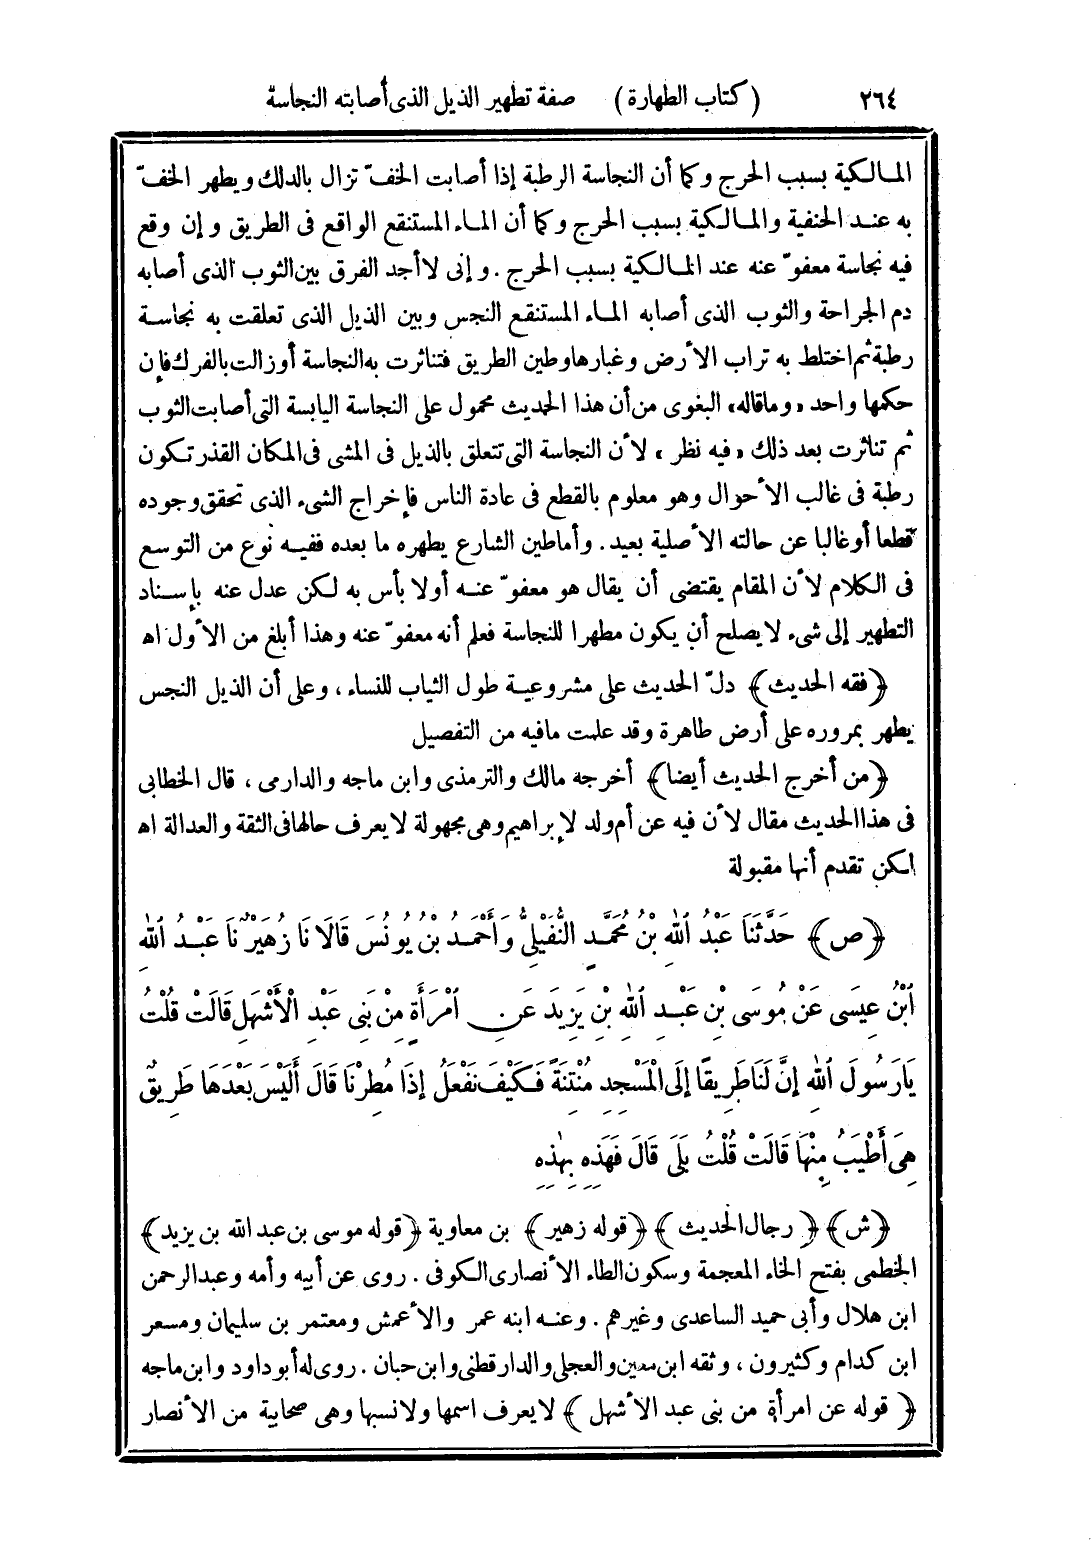 ٢٦٤ (كتاب الطهارة) صفة تطهير الذيل الذى أصابته النجاسة
المالكية بسبب الحرج وكما أن النجاسة الرطبة إذا أصابت الخفّ تزال بالدلك ويطهر الخفّ
به عند الحنفية والمالكية بسبب الحرج وكما أن الماء المستنقع الواقع فى الطريق وإن وقع
فيه نجاسة معفوّ عنه عند المالكية بسبب الحرج. وإنى لاأجد الفرق بين الثوب الذى أصابه
دم الجراحة والثوب الذى أصابه الماء المستنقع النجس وبين الذيل الذى تعلقت به نجاسة
رطبة ثم اختلط به تراب الأرض وغبارها وطين الطريق فتناثرت به النجاسة أو زالت بالفرك فإن
حكمها واحد «وماقاله» البغوى من أن هذا الحديث محمول على النجاسة اليابسة التى أصابت الثوب
ثم تناثرت بعد ذلك «فيه نظر» لأن النجاسة التى تتعلق بالذيل فى المشى فى المكان القذر تكون
رطبة فى غالب الأحوال وهو معلوم بالقطع فى عادة الناس فإخراج الشىء الذى تحقق وجوده
قطعا أوغالبا عن حالته الأصلية بعيد. وأماطين الشارع يطهره ما بعده ففيه نوع من التوسع
فى الكلام لأن المقام يقتضى أن يقال هو معفوّ عنه أولا بأس به لكن عدل عنه بإسناد
التطهير إلى شىء لايصلح أن يكون مطهرا للنجاسة فعلم أنه معفوّ عنه وهذا أبلغ من الأول اه
﴿فقه الحديث﴾ دلّ الحديث على مشروعية طول الثياب للنساء، وعلى أن الذيل النجس
يطهر بمروره على أرض طاهرة وقد علمت مافيه من التفصيل
﴿من أخرج الحديث أيضا﴾ أخرجه مالك والترمذى وابن ماجه والدارمى، قال الخطابى
فى هذا الحديث مقال لأن فيه عن أم ولد لإبراهيم وهى مجهولة لايعرف حالها فى الثقة والعدالة اه
لكن تقدم أنها مقبولة
﴿ص﴾ حَدَّثَنَا عَبْدُ اللهِ بْنُ مُحَمَّدٍ النُّفَيْلِىُّ وَأَحْمَدُ بْنُ يُونُسَ قَالَا نَا زُهَيْرٌ نَا عَبْدُ اللهِ
ابْنُ عِيسَى عَنْ مُوسَى بْنِ عَبْدِ اللهِ بْنِ يَزِيدَ عَنِ امْرَأَةٍ مِنْ بَنِى عَبْدِ الْأَشْهَلِ قَالَتْ قُلْتُ
يَارَسُولَ اللهِ إِنَّ لَنَا طَرِيقًا إِلَى الْمَسْجِدِ مُنْتِنَةً فَكَيْفَ نَفْعَلُ إِذَا مُطِرْنَا قَالَ أَلَيْسَ بَعْدَهَا طَرِيقٌ
هِىَ أَطْيَبُ مِنْهَا قَالَتْ قُلْتُ بَلَى قَالَ فَهَذِهِ بِهَذِهِ
﴿ش﴾ ﴿رجال الحديث﴾ ﴿قوله زهير﴾ بن معاوية ﴿قوله موسى بن عبد الله بن يزيد﴾
الخطمى بفتح الخاء المعجمة وسكون الطاء الأنصارى الكوفى. روى عن أبيه وأمه وعبدالرحمن
ابن هلال وأبى حميد الساعدى وغيرهم. وعنه ابنه عمر والأعمش ومعتمر بن سليمان ومسعر
ابن كدام وكثيرون، وثقه ابن معين والعجلى والدارقطنى وابن حبان. روى له أبوداود وابن ماجه
﴿قوله عن امرأة من بنى عبد الأشهل﴾ لايعرف اسمها ولانسبها وهى صحابية من الأنصار